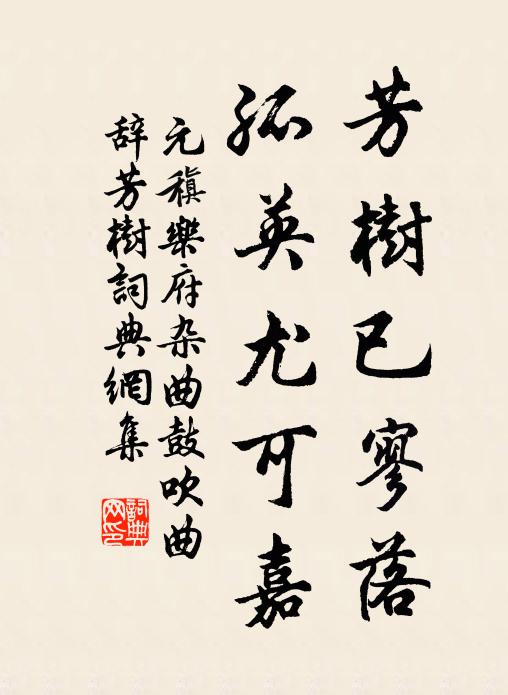 芳樹已寥落
孤英尤可嘉
元稹樂府杂曲鼓吹曲
辞芳樹詞典網集
詞典
网印